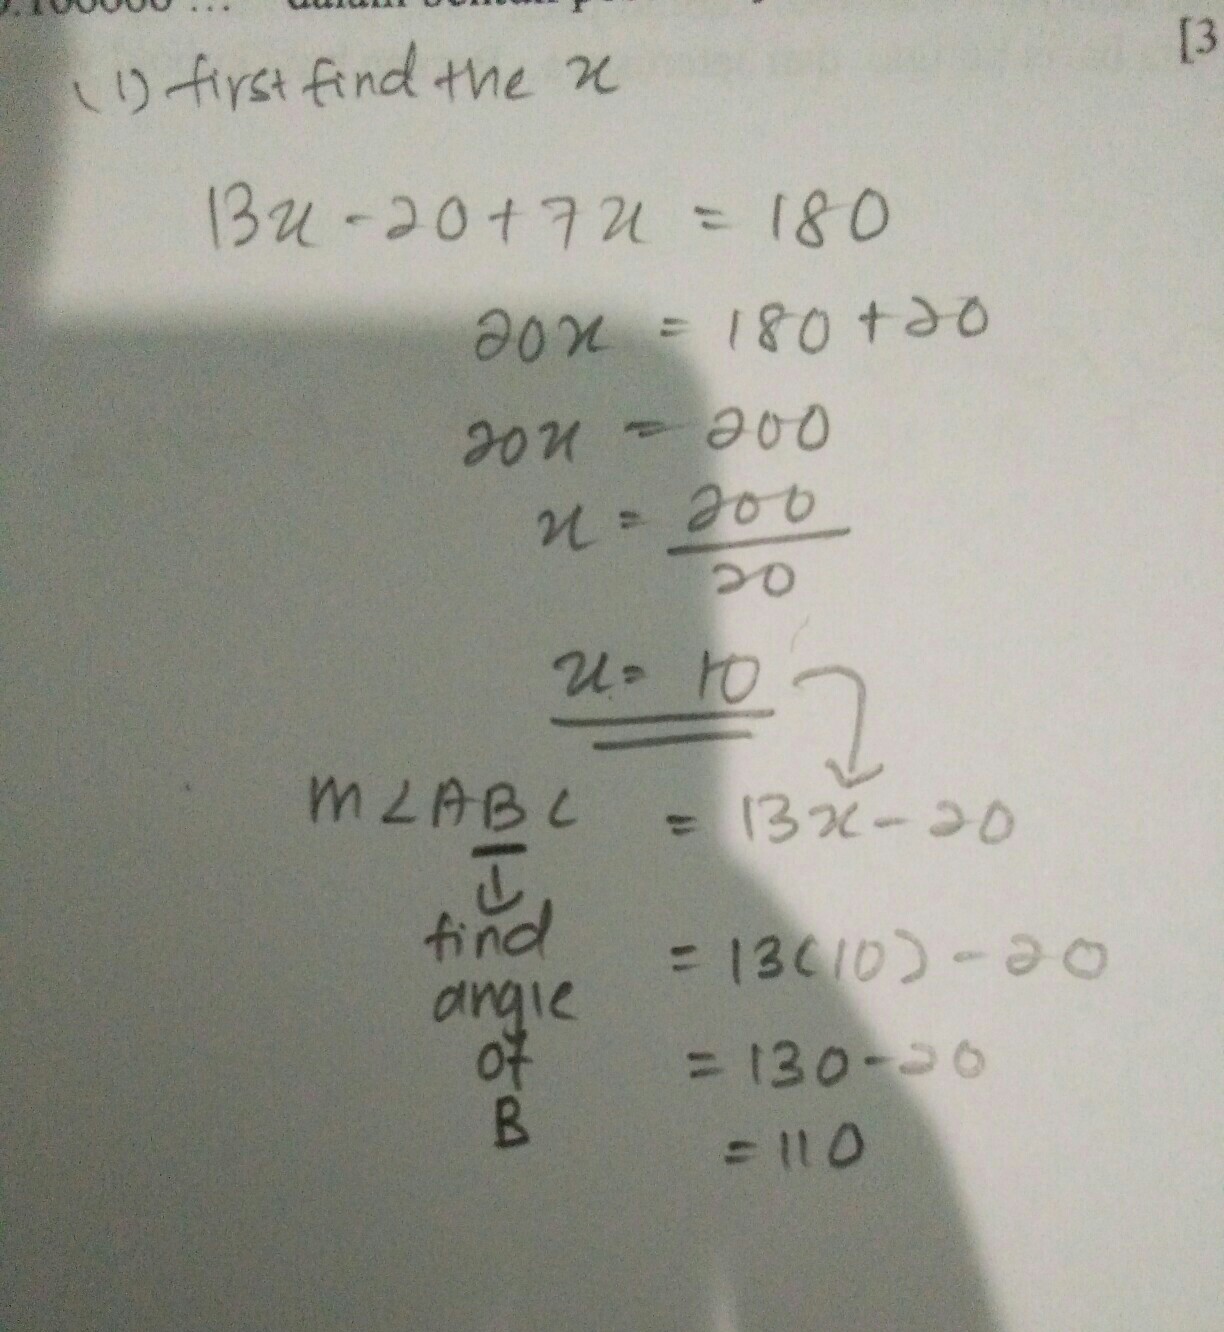 [3
(1) first find the x
13x - 20 + 7x = 180
20x = 180 + 20
20x = 200
x = 200
20
x = 10
m∠ABC = 13x - 20
find
= 13(10) - 20
angle
of
= 130 - 20
B
= 110